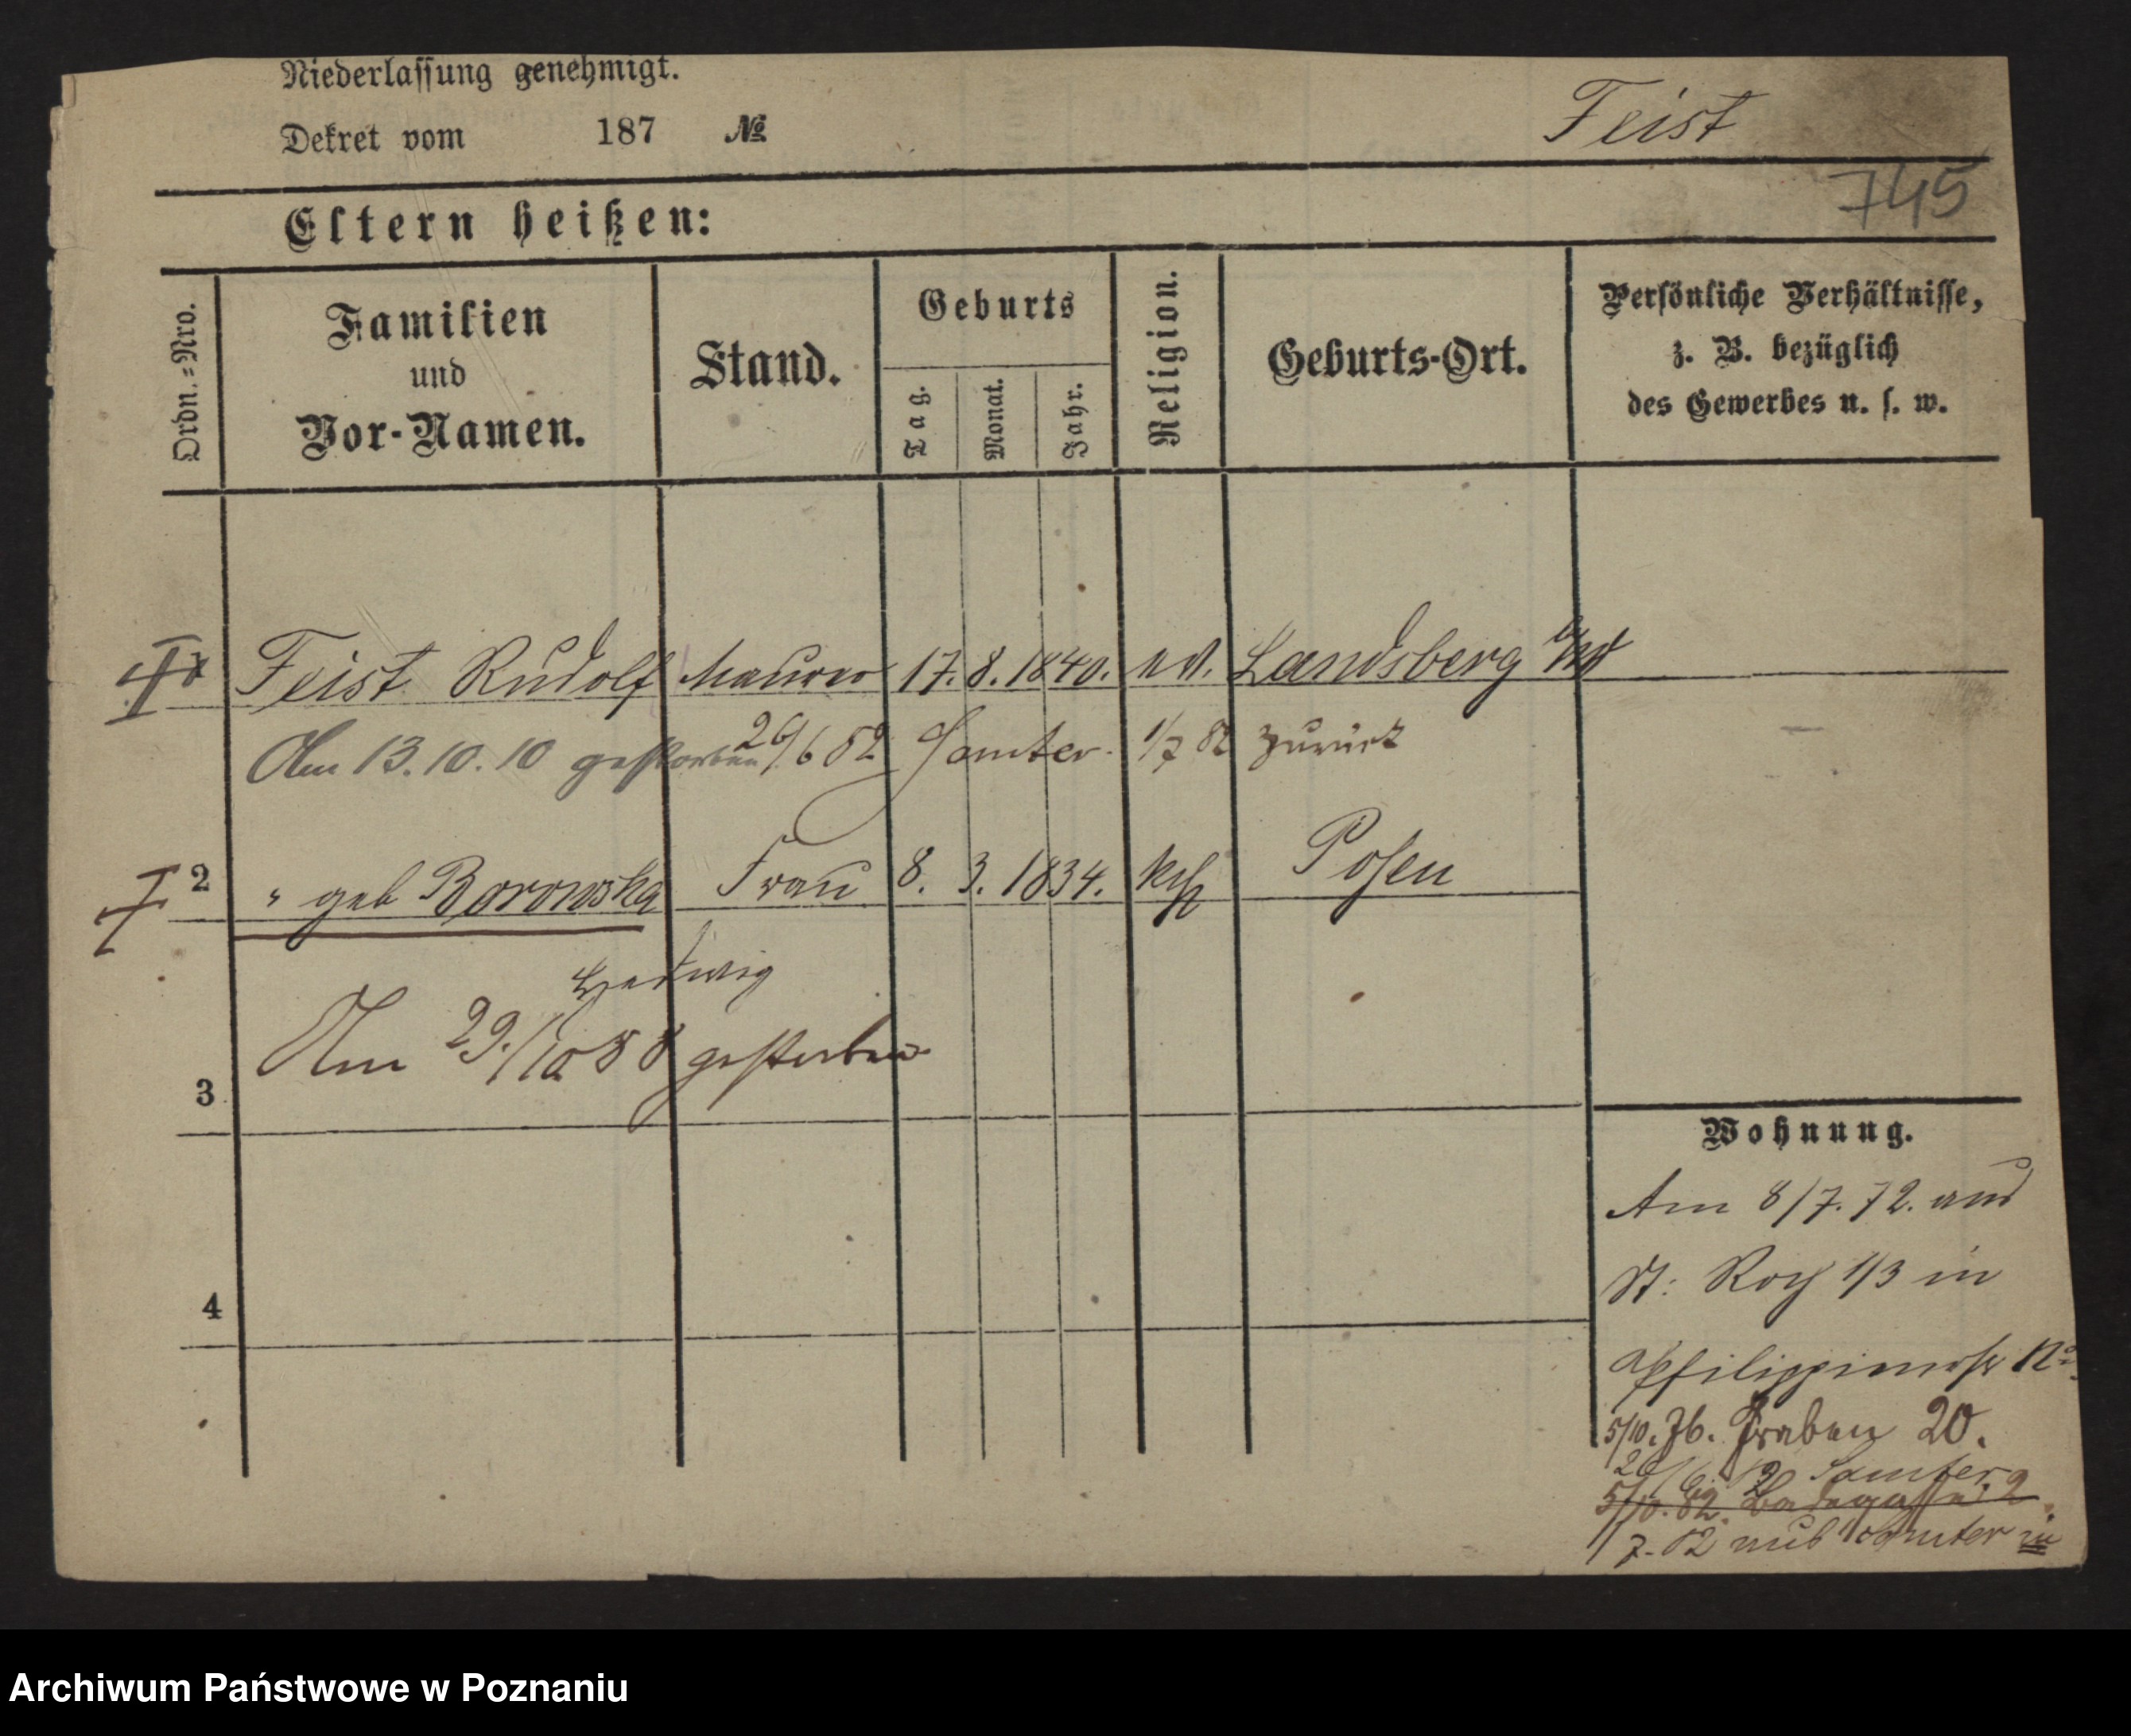 Niederlassung genehmigt.
Dekret vom 187 №
Feist
745
Eltern heißen:
Ordn.=Nro.
Familien
und
Vor-Namen.
Stand.
Geburts
Tag.
Monat.
Jahr.
Religion.
Geburts-Ort.
Persönliche Verhältnisse,
z. B. bezüglich
des Gewerbes u. s. w.
1 Feist Rudolf Maurer 17. 8. 1840. Landsberg
Am 13.10.10 gestorben 26/6 82 Samter. 1/7 82 zurück
2 " geb Borowska Frau 8. 3. 1834. kth Posen
Hedwig
Am 29./10 88 gestorben
3
4
Wohnung.
Am 8/7. 72. aus
St: Roch 1/3 in
5/10. 76. Graben 20.
26/6. 82 Samter
5/10. 82. Badegasse 2.
1/7. 82 aus Samter
Archiwum Państwowe w Poznaniu